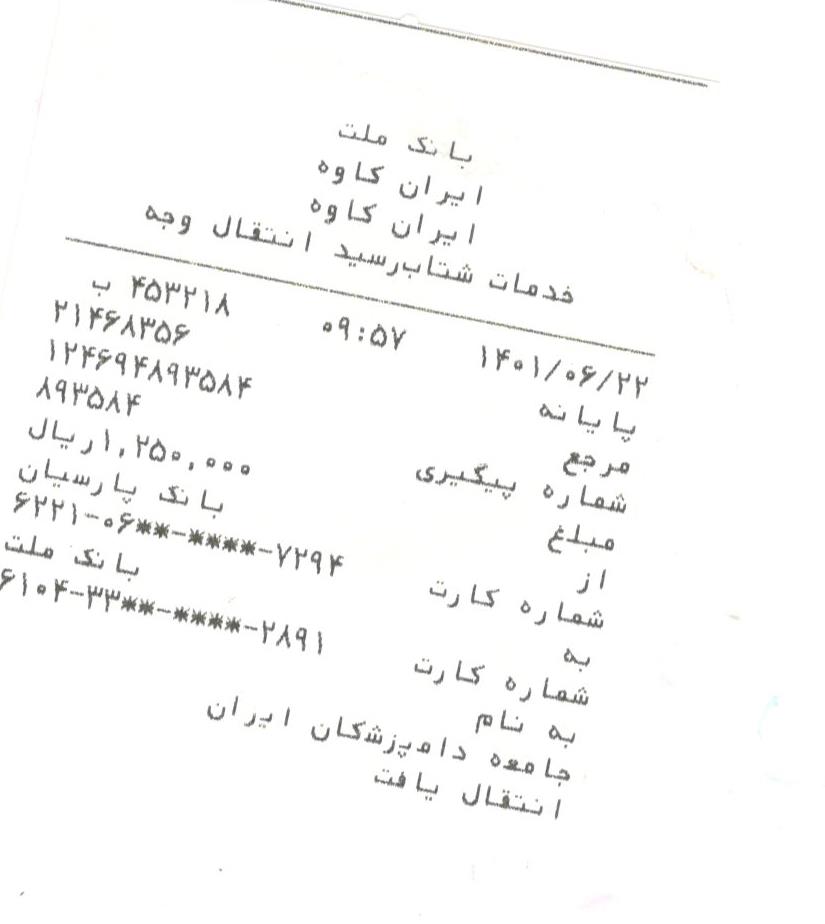 بانک ملت
ایران کاوه
ایران کاوه
خدمات شتاب‌رسید انتقال وجه
۱۴۰۱/۰۶/۲۲ ۰۹:۵۷ ۴۵۳۲۱۸ ب
پایانه ۲۱۴۶۸۳۵۶
مرجع ۱۲۴۶۹۴۸۹۳۵۸۴
شماره پیگیری ۸۹۳۵۸۴
مبلغ ۱,۲۵۰,۰۰۰ریال
از بانک پارسیان
شماره کارت ۶۲۲۱-۰۶**-****-۷۲۹۴
به بانک ملت
شماره کارت ۶۱۰۴-۳۳**-****-۲۸۹۱
به نام
جامعه دامپزشکان ایران
انتقال یافت